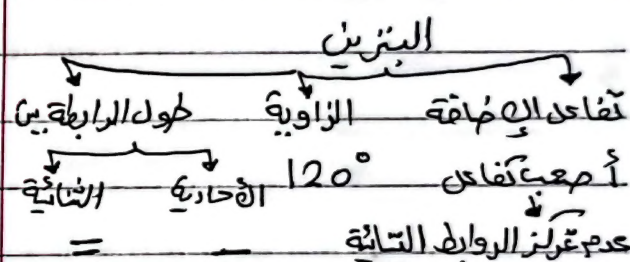 البنزين
تفاعل الإضافة الزاوية طول الرابطة بين
أصعب تفاعل 120° الأحادية الثنائية
عدم تمركز الروابط الثنائية – =